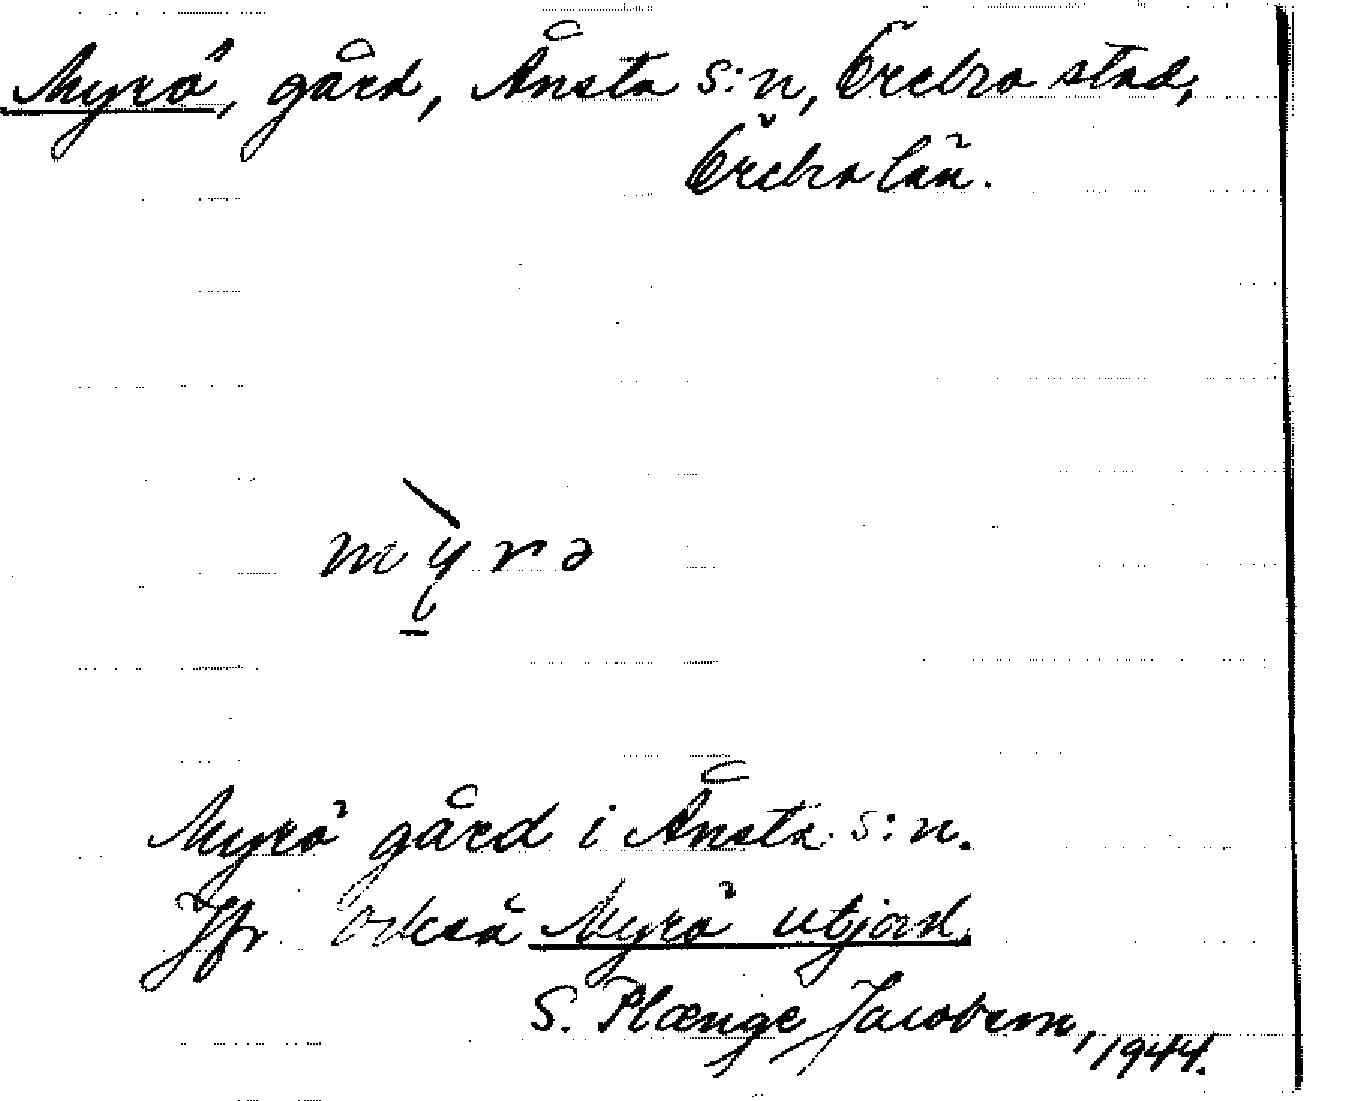 Myrö, gård, Ånsta s:n, Örebro stad,
Örebro län.
mỳrə
Myrö gård i Ånsta s:n.
Jfr också Myrö utjord.
S. Plænge Jacobson, 1944.